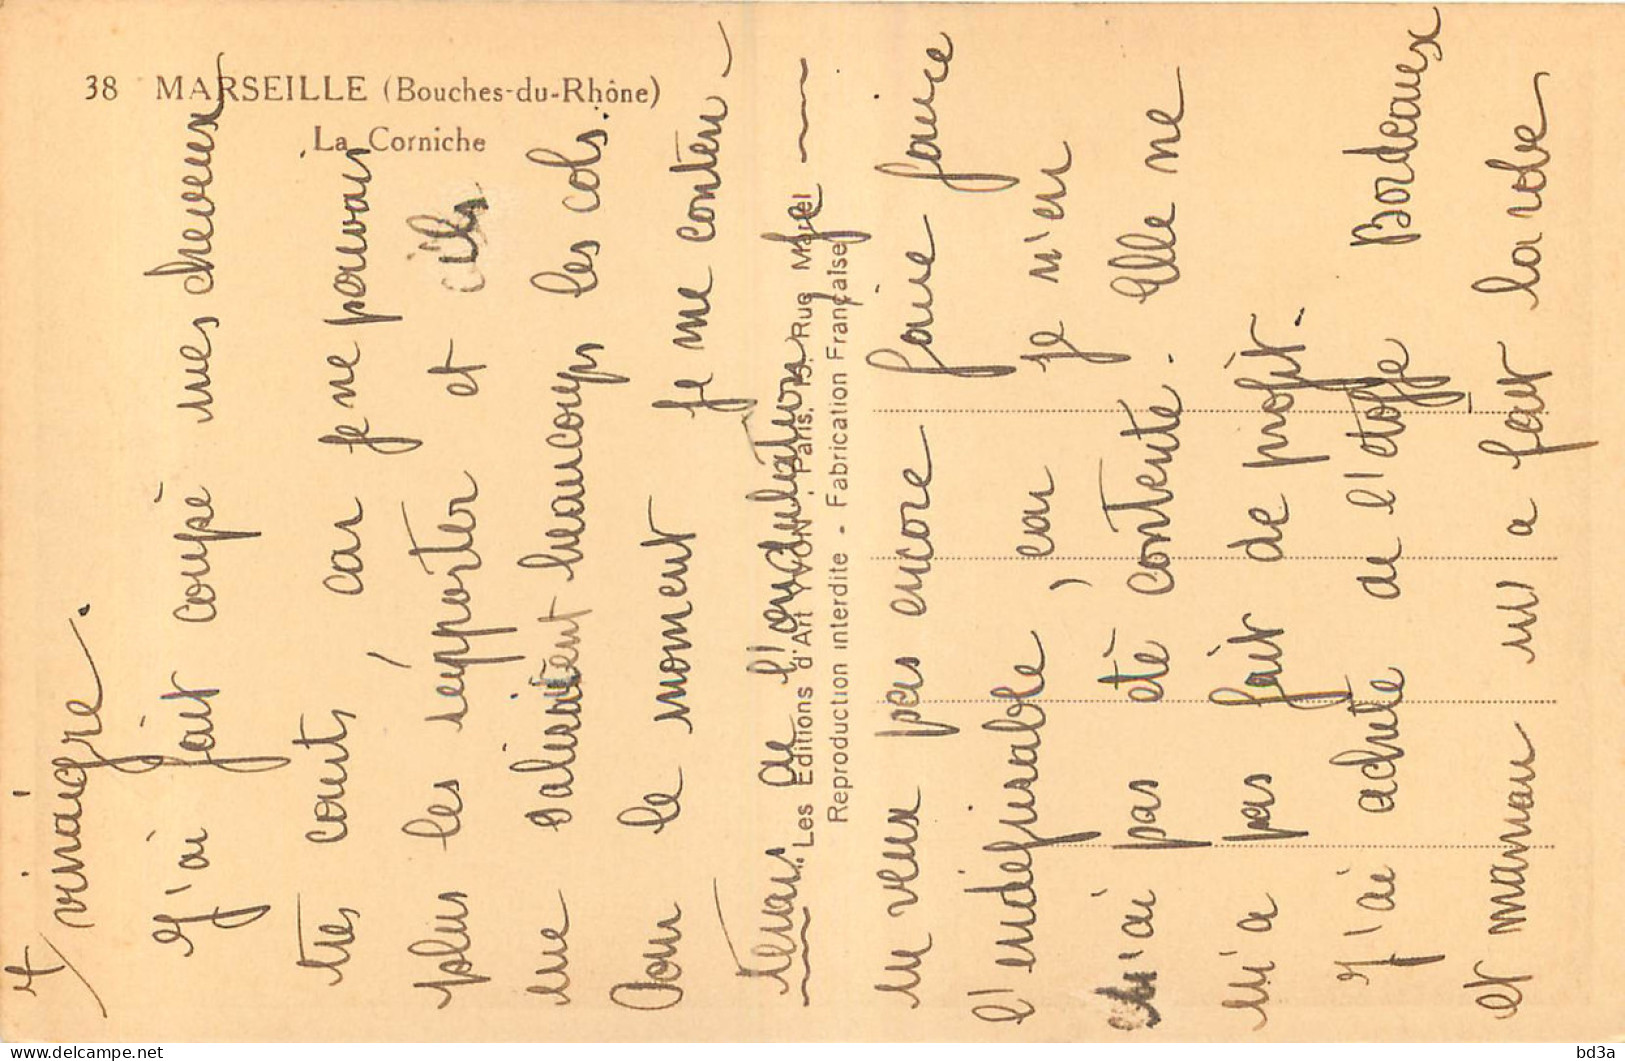 38 MARSEILLE (Bouches-du-Rhône)
La Corniche
"Les Editions d'Art YVON" Paris. 15, Rue Martel
Reproduction interdite - Fabrication Française
et
vinaigre.
J'ai fait coupé mes cheveux
tres court, car je ne pouvais
plus les supporter et ils
me salissaient beaucoup les cols.
Pour le moment je me conten-
terais de l'ondulation je
ne veux pas encore faire faire
l'indefrisable, car je n'en
n'ai pas été contente. Elle ne
m'a pas fait de profit.
J'ai acheté de l'etoffe Bordeaux
et maman m'a fait la robe
bd3a